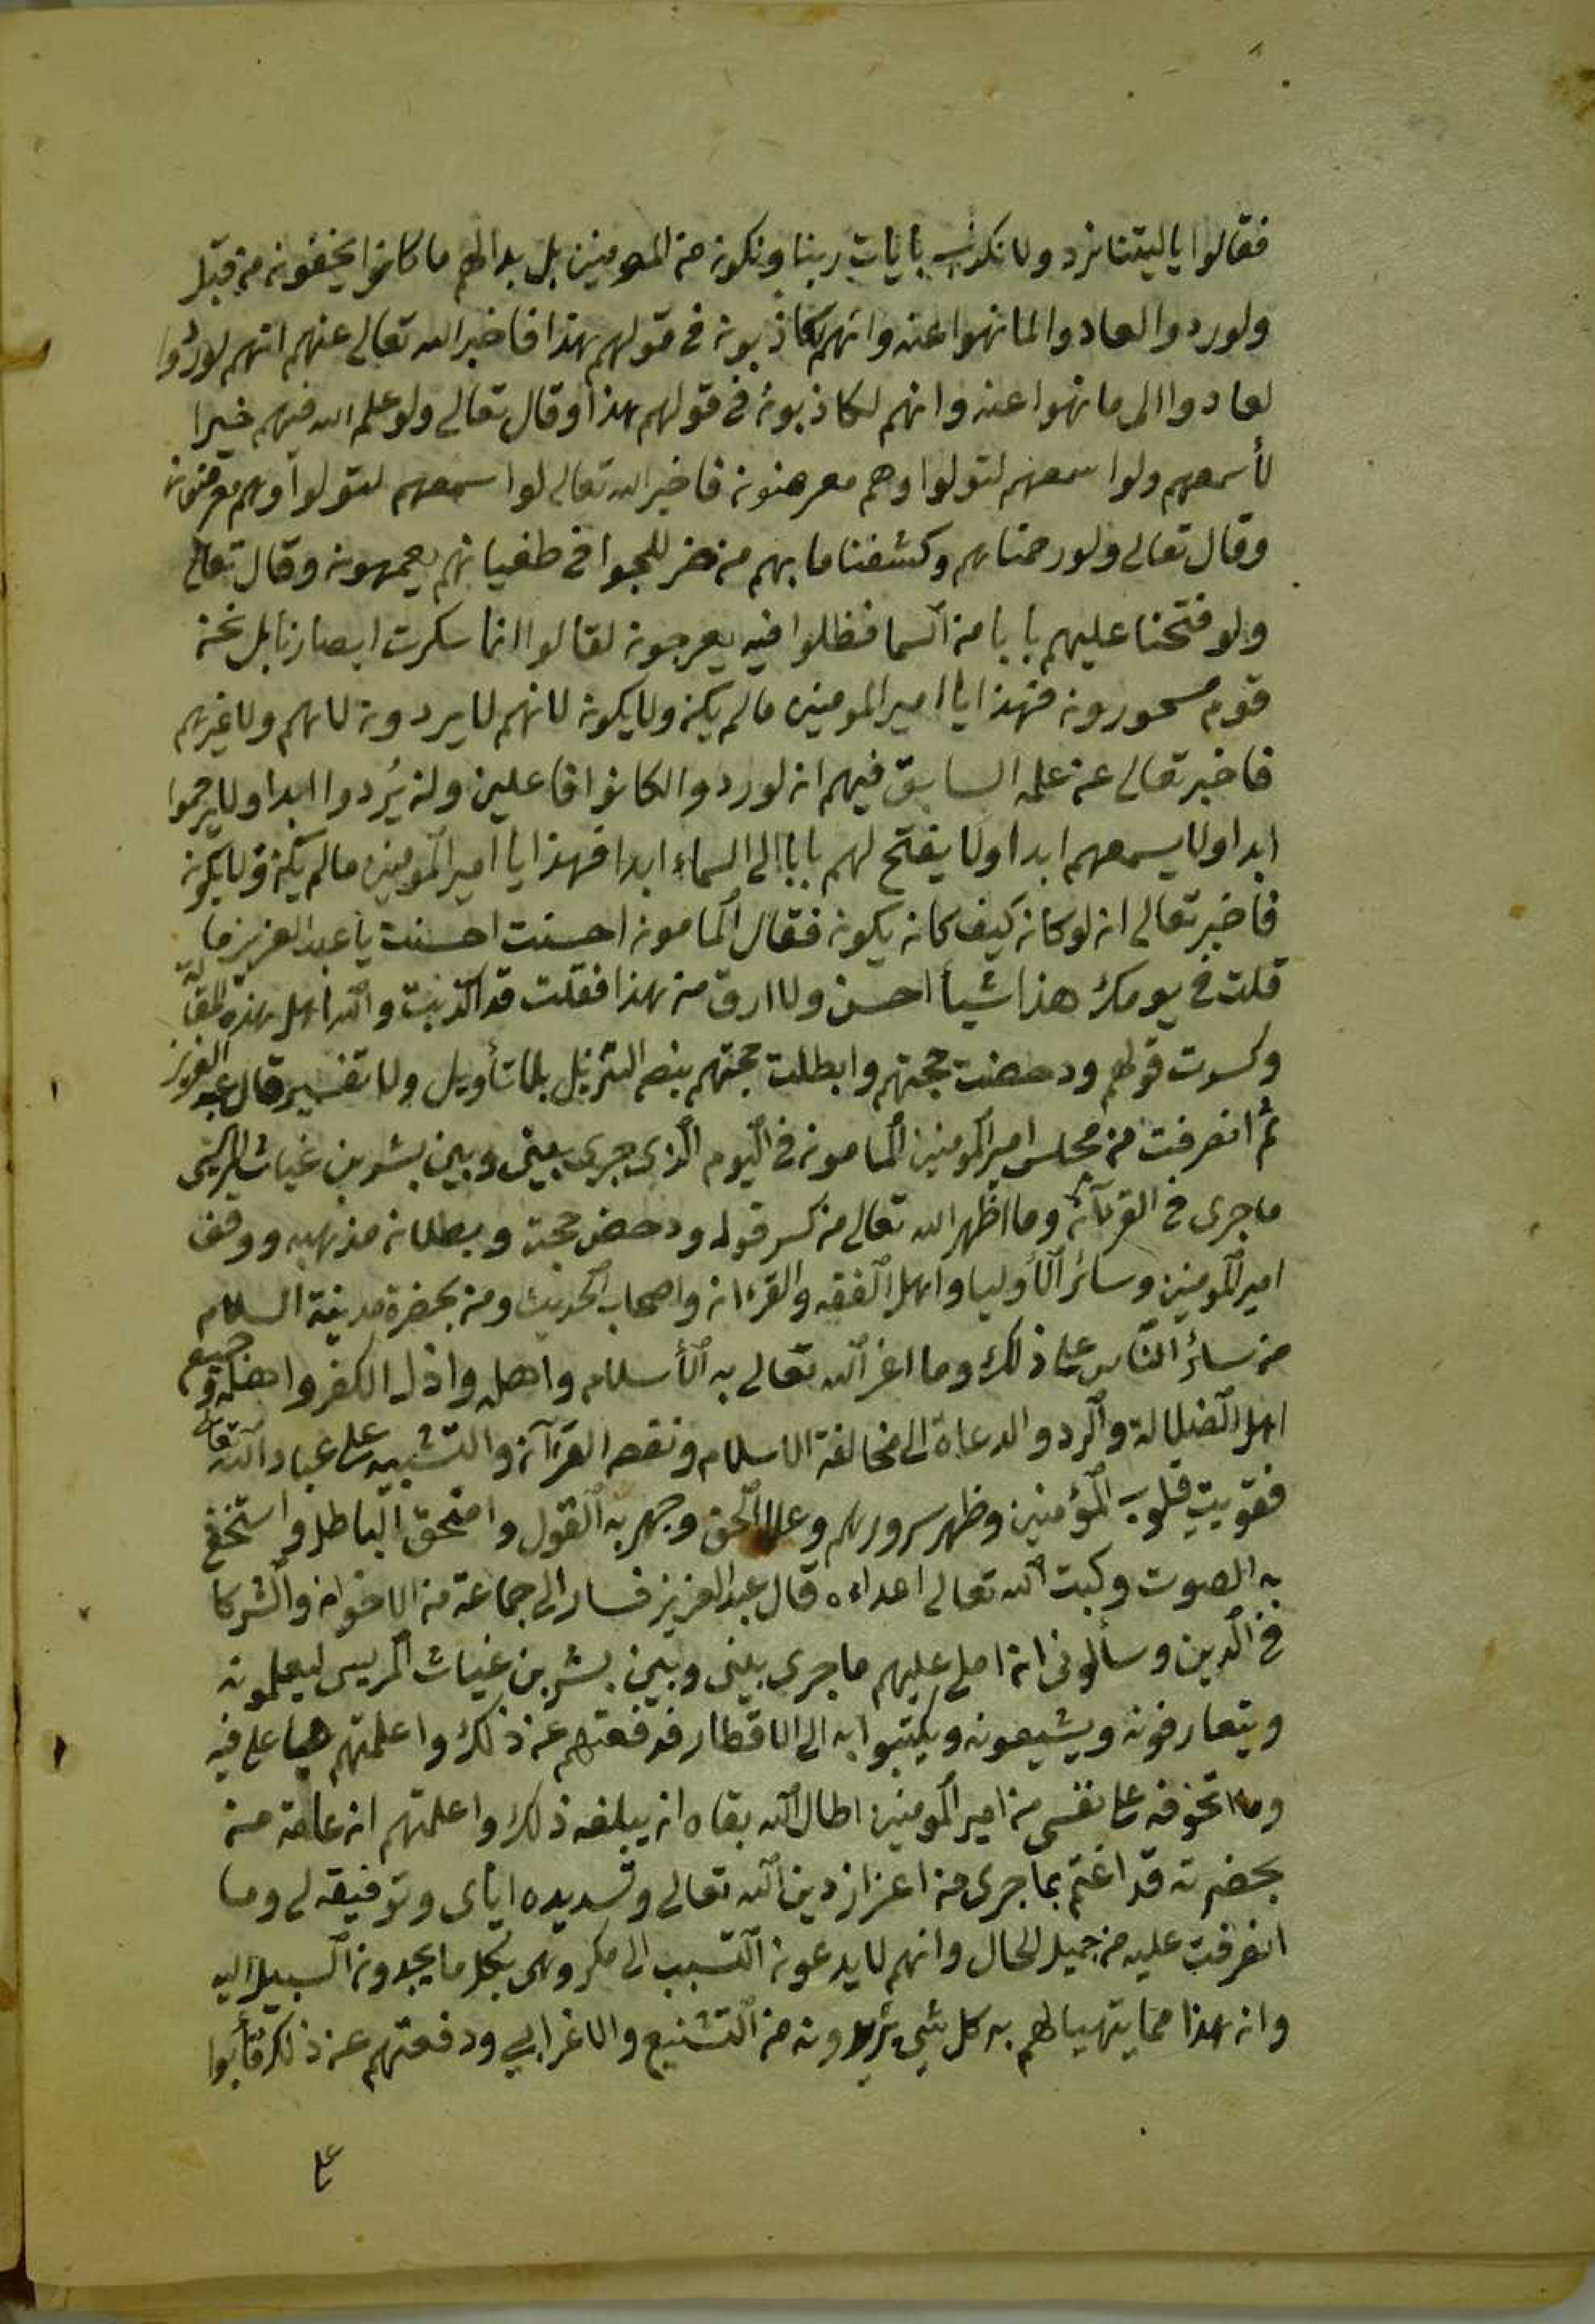 فقالوا ياليتنا نرد ولا نكذب بايات ربنا ونكون من المومنين بل بدا لهم ما كانوا يخفون من قبل
ولو ردوا لعادوا لما نهوا عنه وانهم لكاذبون في قولهم هذا فاخبر الله تعالى عنهم انهم لو ردوا
لعادوا الى ما نهوا عنه وانهم لكاذبون في قولهم هذا وقال تعالى ولو علم الله فيهم خيرا
لأسمعهم ولو اسمعهم لتولوا وهم معرضون فاخبر الله تعالى لو اسمعهم لتولوا وهم معرضون
وقال تعالى ولو رحمناهم وكشفنا ما بهم من ضر للجوا في طغيانهم يعمهون وقال تعالى
ولو فتحنا عليهم بابا من السما فظلوا فيه يعرجون لقالوا انما سكرت ابصارنا بل نحن
قوم مسحورون فهذا يا امير المومنين ما لم يكن ولا يكون لانهم لا يردون لاهم ولا غيرهم
فاخبر تعالى عن علمه السابق فيهم انه لو ردوا لكانوا فاعلين ولن يُردوا ابدا ولا يرحموا
ابدا ولا يسمعهم ابدا ولا يفتح لهم بابا الى السماء ابدا فهذا يا امير المومنين ما لم يكن ولا يكون
فاخبر تعالى انه لو كان كيف كان يكون فقال المامون احسنت احسنت يا عبد العزيز ما
قلت في يومك هذا شيأ احسن ولا ارق من هذا فقلت قد اكذبت والله اهل هذه المقالة
وكسرت قولهم ودحضت حجتهم وابطلت حجتهم بنص التنزيل بلا تأويل ولا تفسير قال عبد العزيز
ثم انصرفت من مجلس امير المومنين المامون في اليوم الذي جرى بيني وبين بشر بن غياث المريسي
ما جرى في القرآن وما اظهر الله تعالى من كسر قوله ودحض حجته وبطلان مذهبه ووقف
امير المومنين وسائر الأوليا واهل الفقه والقرءان واصحاب الحديث ومن بحضرة مدينة السلام
من سائر الناس على ذلك وما اعز الله تعالى به الأسلام واهله واذل الكفر واهله وجميع
اهل الضلالة والرد والدعاة الى مخالفة الاسلام ونقص القرآن والتشبيه على عباد الله تعالى
فقويت قلوب المؤمنين وظهر سرورهم وعلا الحق وجهر به القول وامتحق الباطل واستخفي
به الصوت وكبت الله تعالى اعداءه قال عبد العزيز فسار الى جماعة من الاخوان والشركا
في الدين وسألوني ان املي عليهم ما جرى بيني وبين بشر بن غياث المريسي ليعلمونه
ويتعارفونه ويشيعونه ويكتبوا به الى الاقطار فدفعتهم عن ذلك واعلمتهم ما علي فيه
وما اتخوفه على نفسي من امير المومنين اطال الله بقاه ان يبلغه ذلك واعلمتهم ان عامة من
بحضرته قد اغتم بما جرى من اعزاز دين الله تعالى وتسديده اياي وتوفيقه لي وما
انصرفت عليه من جميل الحال وانهم لا يدعون التسبب الى مكروهي بكل ما يجدون السبيل اليه
وان هذا مما يتهيا لهم به كل شي يريدونه من التشنيع والاغرا بي ودفعتهم عن ذلك فأبوا